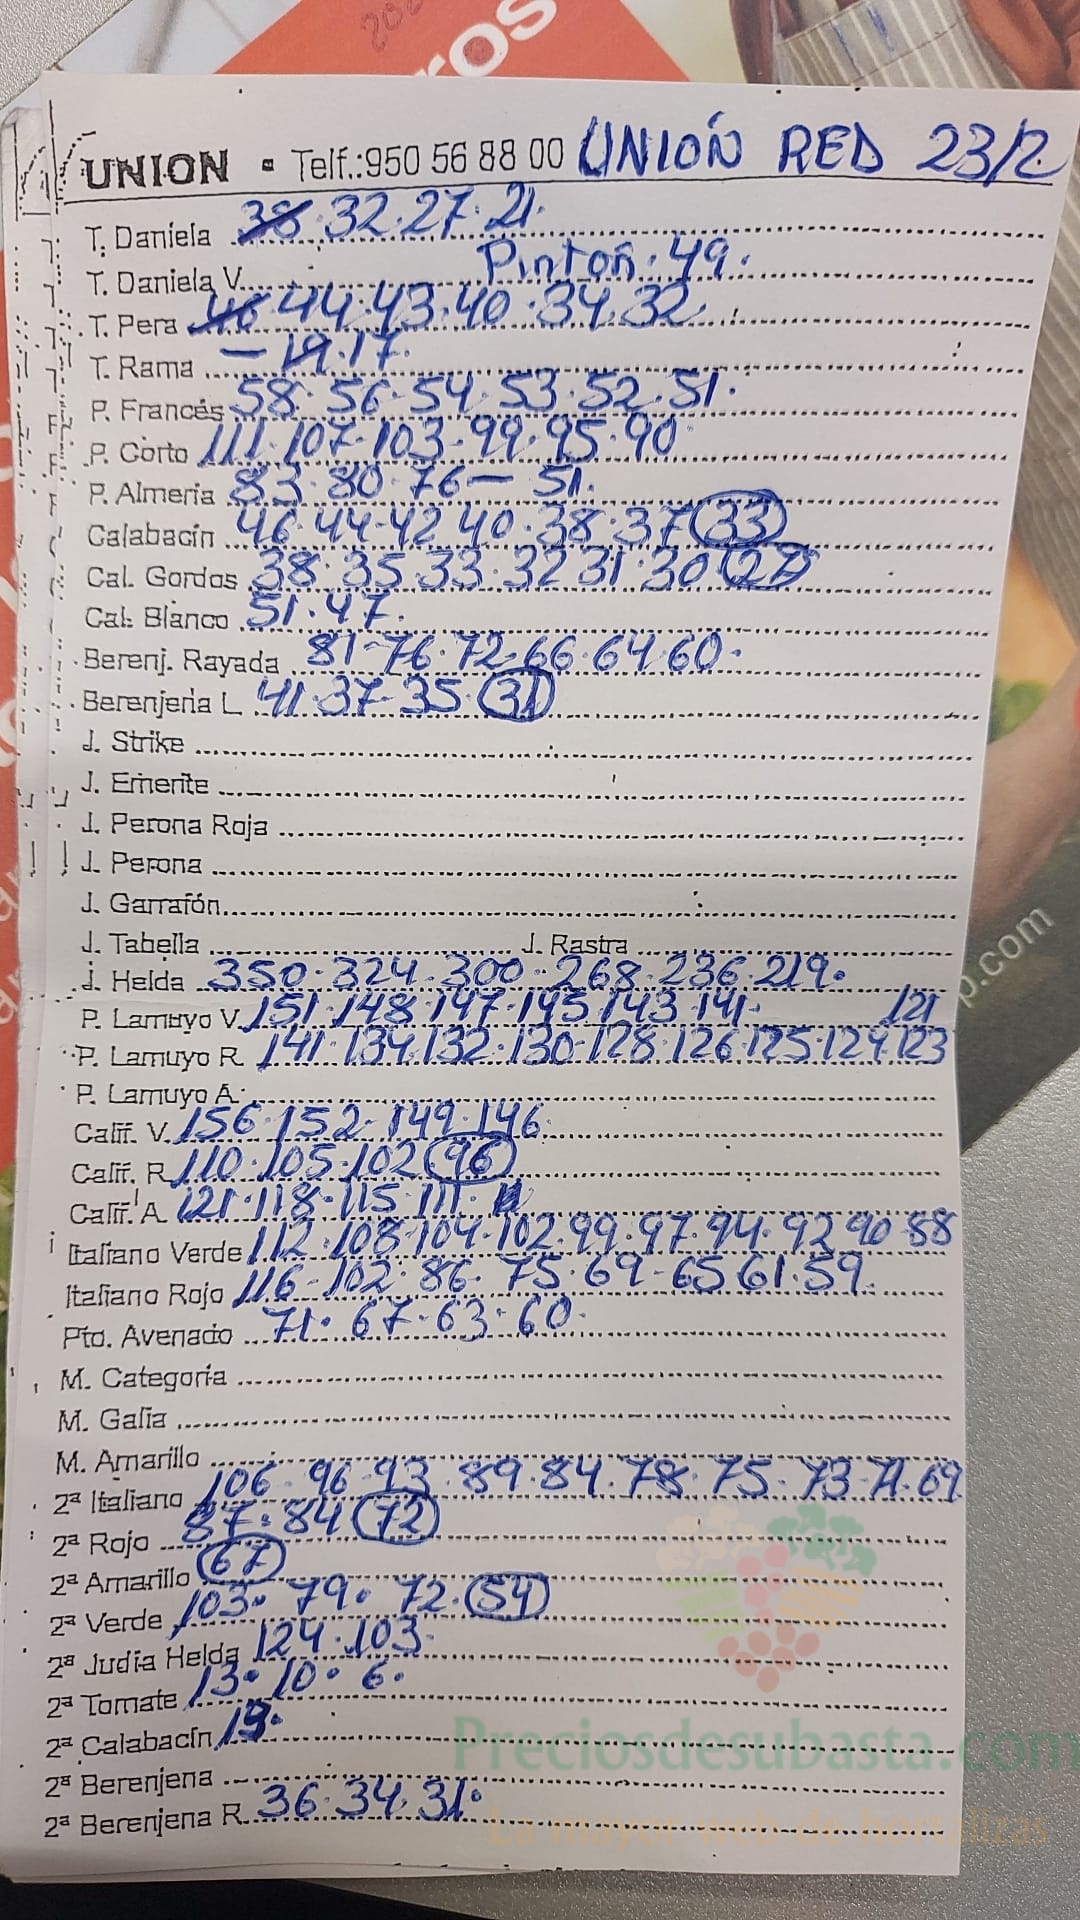 ros
UNION - Telf.:950 56 88 00 UNIÓN RED 23/2
T. Daniela 38. 32. 27. 21.
T. Daniela V. Pinton. 49.
T. Pera 46 44. 43. 40. 34. 32
T. Rama – 19. 17.
P. Francés 58. 56. 54. 53. 52. 51.
P. Corto 111. 107. 103. 99. 95. 90
P. Almeria 83. 80. 76 – 51.
Calabacín 46. 44. 42 40. 38. 37 33
Cal. Gordos 38. 35. 33. 32 31. 30 27
Cal. Blanco 51. 47.
Berenj. Rayada 81. 76. 72. 66. 64. 60.
Berenjena L 41. 37. 35. 31
J. Strike
J. Emerite
J. Perona Roja
J. Perona
J. Garrafón
J. Tabella J. Rastra
J. Helda 350. 324. 300. 268. 236. 219.
P. Lamuyo V. 151. 148. 147. 145. 143. 141. 121
P. Lamuyo R. 141. 134. 132. 130. 128. 126. 125. 124. 123
P. Lamuyo A.
Calif. V. 156. 152. 149. 146.
Calif. R. 110. 105. 102 96
Calif. A. 121. 118. 115. 111.
Italiano Verde 112. 108. 104. 102. 99. 97. 94. 92 90 88
Italiano Rojo 116. 102. 86. 75. 69. 65 61. 59.
Pto. Avenado 71. 67. 63. 60.
M. Categoria
M. Galia
M. Amarillo
2ª Italiano 106. 96. 93. 89. 84. 78. 75. 73. 71. 69
2ª Rojo 87. 84 72
2ª Amarillo 67
2ª Verde 103. 79. 72. 54
2ª Judia Helda 124. 103.
2ª Tomate 13. 10. 6.
2ª Calabacín
2ª Berenjena
2ª Berenjena R. 36. 34. 31.
p.com
Preciosdesubasta.com
La mayor web de hortalizas